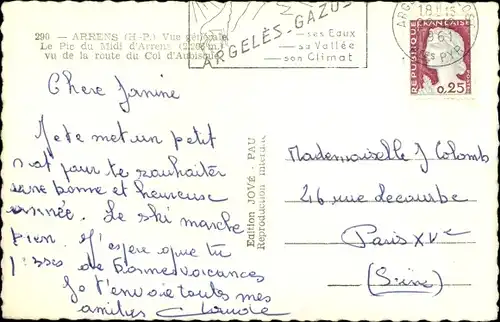 290 - ARRENS (H-P.) Vue générale
Le Pic du Midi d'Arrens
vu de la route du Col d'Aubisque
ARGELÈS-GAZOST
ses Eaux
sa Vallée
son Climat
18H15
1961
RÉPUBLIQUE FRANÇAISE
0,25
Chere Janine
Je te met un petit
mot pour te souhaiter
une bonne et heureuse
année. Le ski marche
bien. J'espère que tu
passes de bonnes vacances
Je t'envoie toutes mes
amitiés Claude
Edition JOVÉ - PAU
Reproduction interdite
Mademoiselle J Colomb
26 rue Lecourbe
Paris XVe
(Seine)